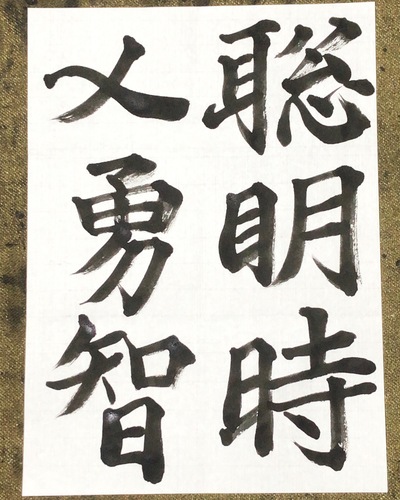 聡明時
乂勇智